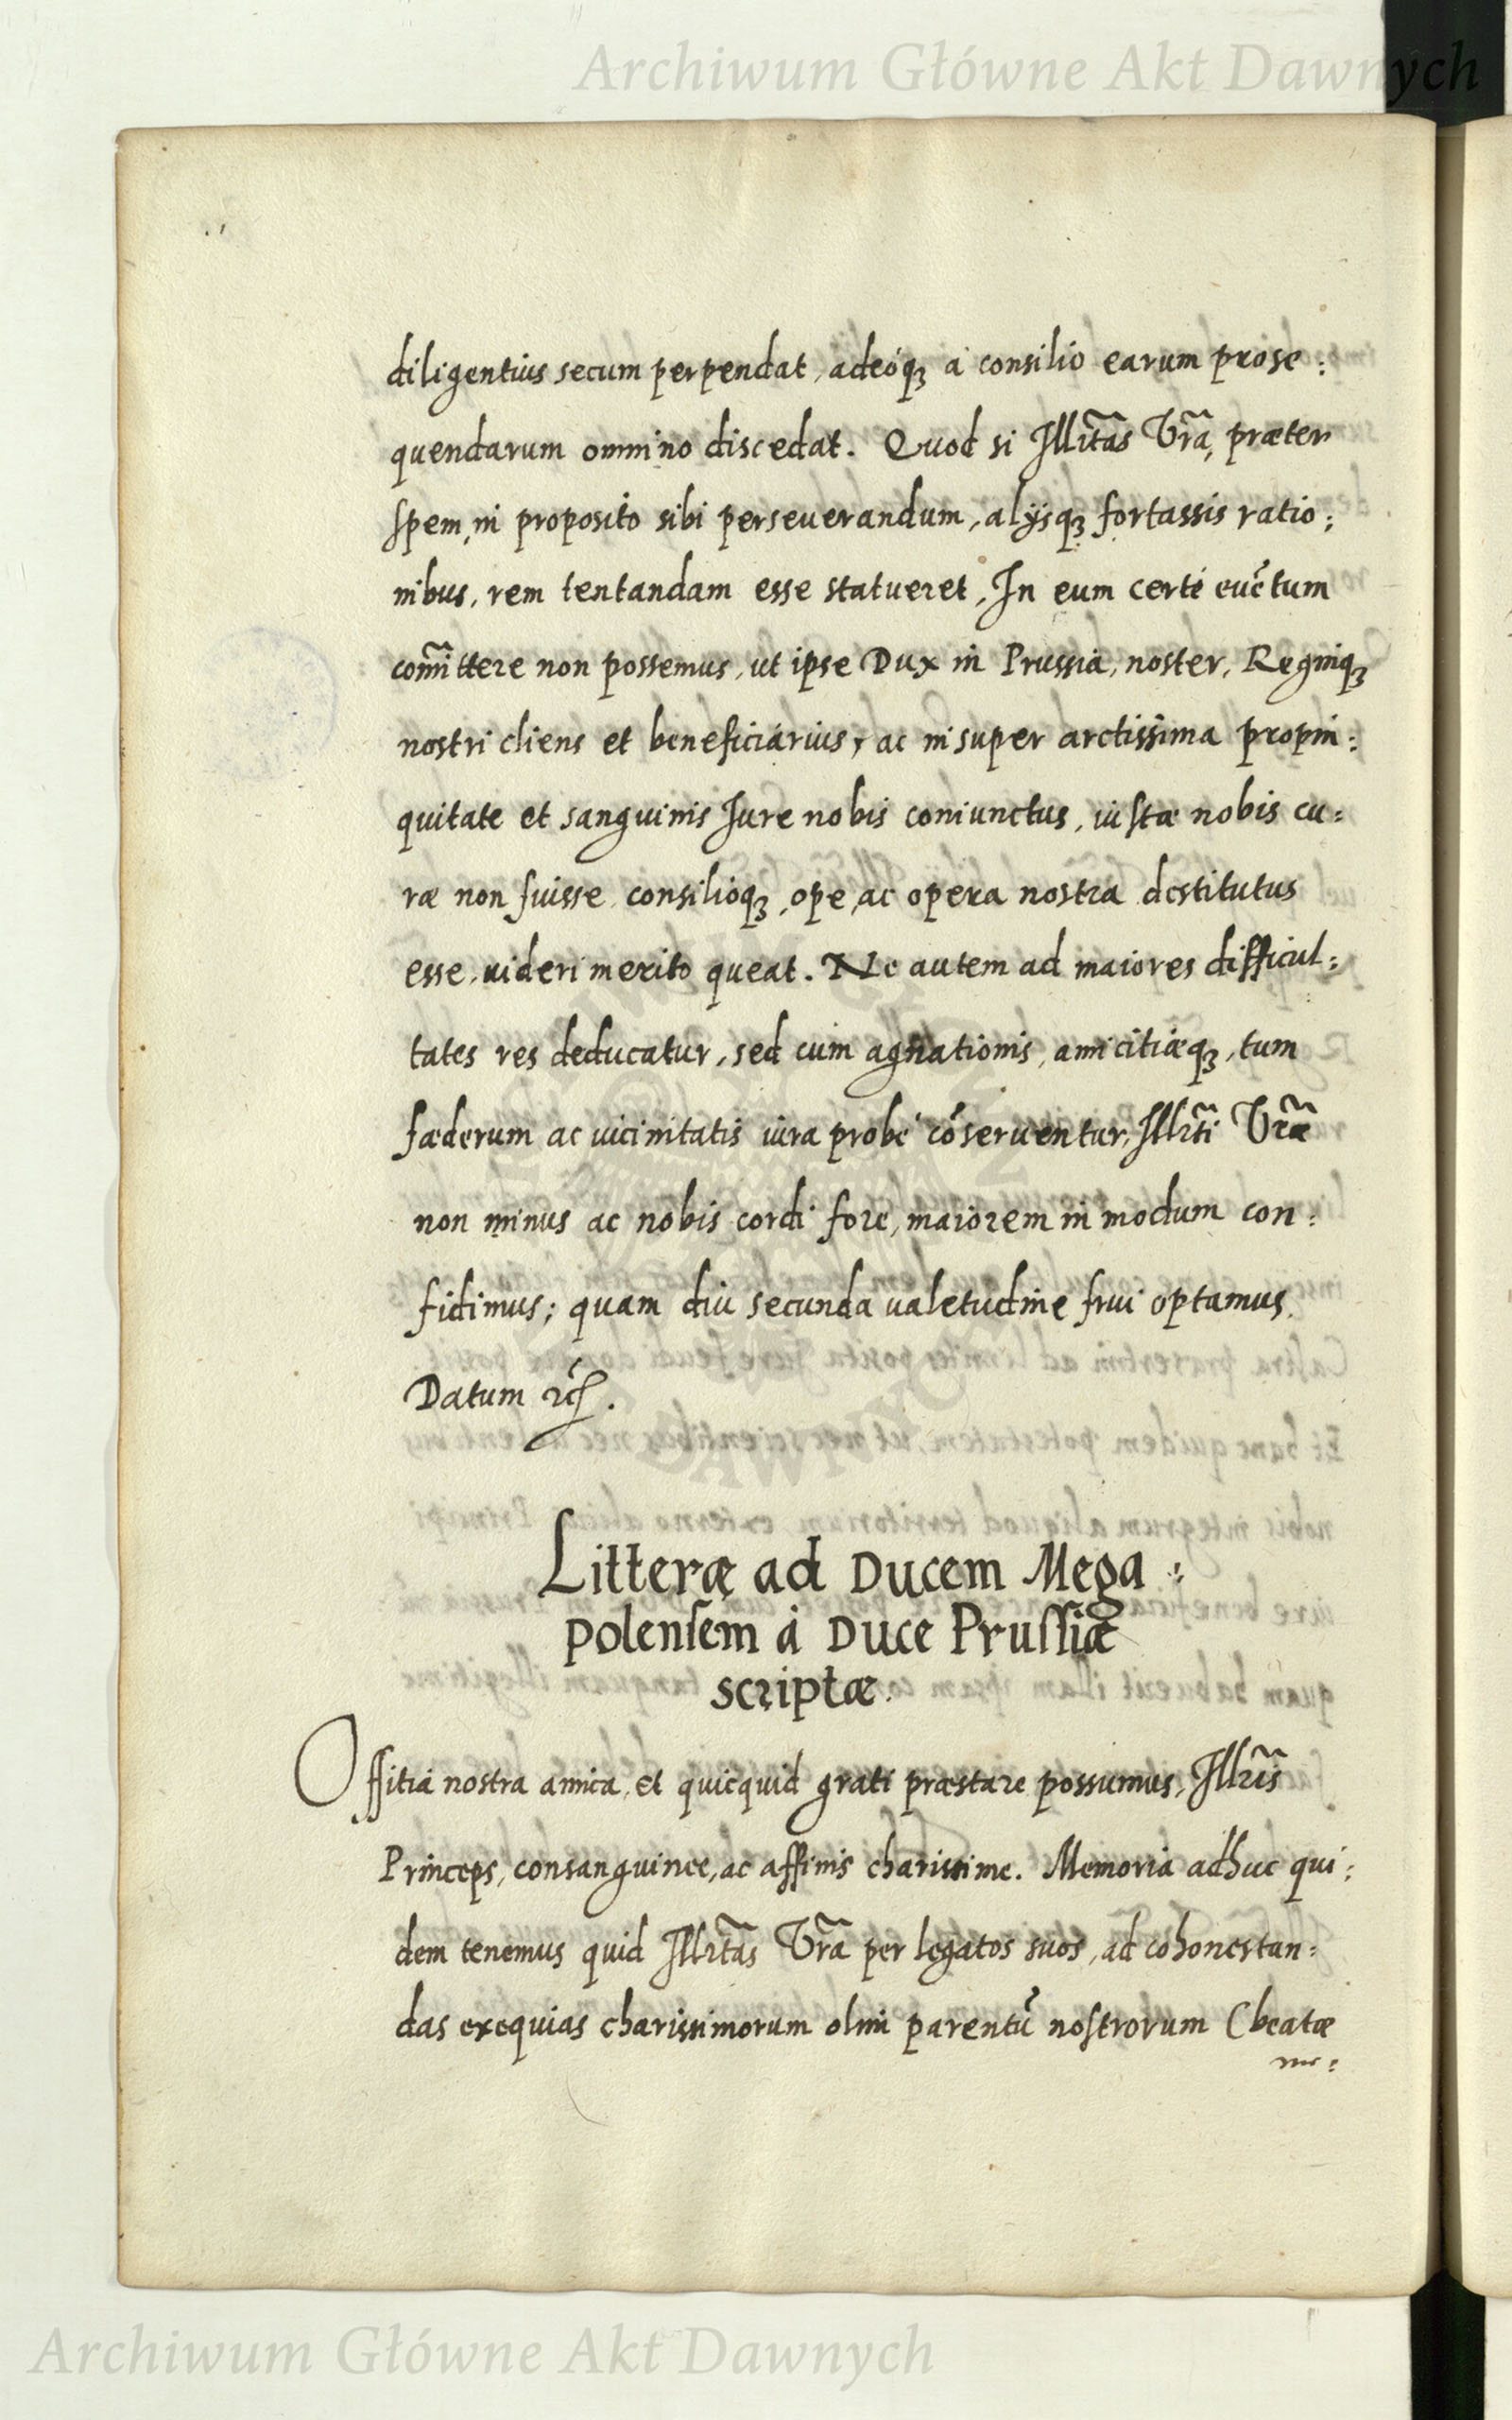 Archiwum Główne Akt Dawnych
diligentius secum perpendat, adeóqꝫ à consilio earum prose:
quendarum omnino discedat. Quod si Illr̃itas Vr̃a, præter
spem, in proposito sibi perseuerandum, alijsqꝫ fortassis ratio:
nibus, rem tentandam esse statueret, In eum certè euẽtum
com̃ittere non possemus, ut ipse Dux in Prussia, noster, Regniqꝫ
nostri cliens et beneficiarius, ac insuper arctissima propin:
quitate et sanguinis Iure nobis coniunctus, iustæ nobis cu:
ræ non fuisse consilioqꝫ, ope, ac opera nostra destitutus
esse, uideri merito queat. Ne autem ad maiores difficul:
tates res deducatur, sed cùm agnationis, amicitiæqꝫ, tum
fæderum ac uicinitatis iura probè cõseruentur, Illr̃ti Vr̃æ
non minus ac nobis cordi fore, maiorem in modum con:
fidimus; quam diu secunda ualetudine frui optamus.
Datum ꝛc̃.
Litteræ ad Ducem Mega:
polensem à Duce Prussiæ
scriptæ.
Offitia nostra amica, et quicquid grati præstare possumus, Illr̃is
Princeps, consanguinee, ac affinis charissime. Memoria adhuc qui:
dem tenemus quid Illr̃tas Vr̃a per legatos suos, ad cohonestan:
das exequias charissimorum olim parentũ nostrorum (beatæ
me:
Archiwum Główne Akt Dawnych